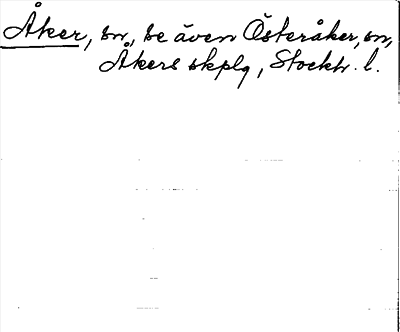 Åker, sn, se även Österåker, sn,
Åkers skplg, Stockh. l.